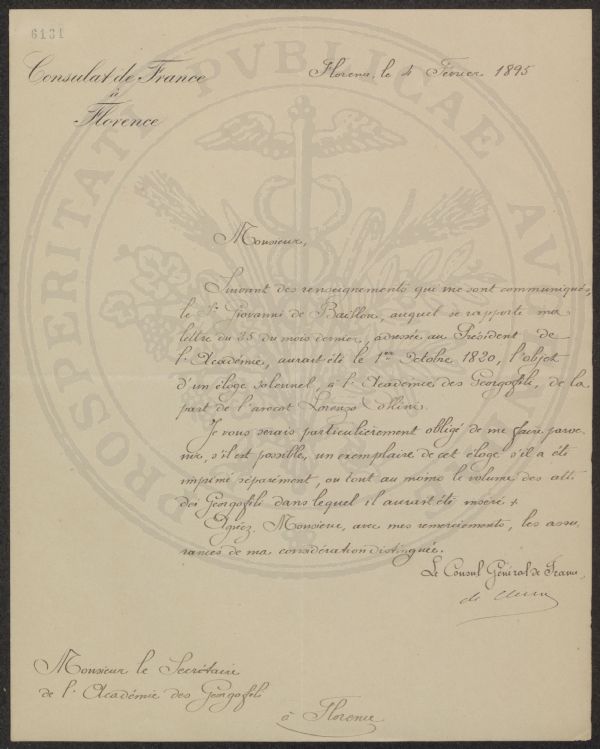 6131
Consulat de France
à
Florence
Florence, le 4 Février 1895
PROSPERITATI PVBLICAE AV
Monsieur,
Suivant des renseignements qui me sont communiqués,
le Sr Giovanni de Baillou, auquel se rapporte ma
lettre du 25 du mois dernier, adressée au Président de
l'Académie, aurait été le 1er octobre 1820, l'objet
d'un éloge solennel, à l'Académie des Georgofili, de la
part de l'avocat Lorenzo Collini.
Je vous serais particulièrement obligé de me faire parve-
nir, s'il est possible, un exemplaire de cet éloge s'il a été
imprimé séparément, ou tout au moins le volume des atti
dei Georgofili dans lequel il aurait été inséré.
Agréez, Monsieur, avec mes remerciements, les assu-
rances de ma considération distinguée.
Le Consul Général de France,
de
Monsieur le Secrétaire
de l'Académie des Georgofili
à Florence